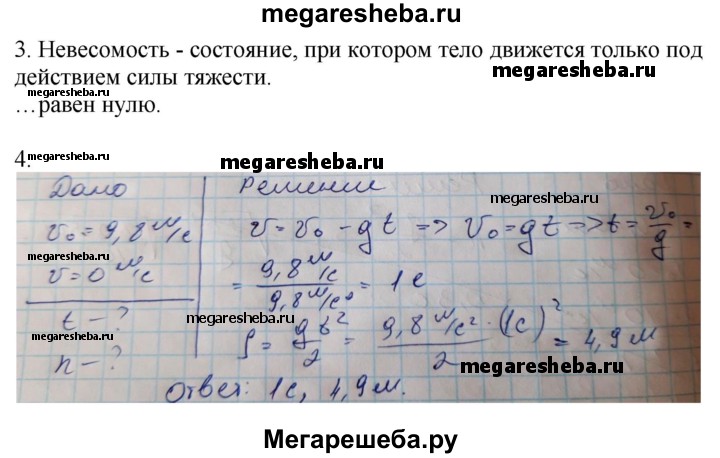 megaresheba.ru
3. Невесомость - состояние, при котором тело движется только под
действием силы тяжести.
megaresheba.ru
…равен нулю.
megaresheba.ru
4.
megaresheba.ru
megaresheba.ru
Дано
Решение
megaresheba.ru
v₀ = 9,8 м/с
v = v₀ - gt => v₀ = gt => t = v₀/g =
megaresheba.ru
v = 0 м/с
= 9,8 м/с / 9,8 м/с² = 1 с
megaresheba.ru
t - ?
megaresheba.ru
h - ?
= gt²/2 = 9,8 м/с² · (1с)²/2 = 4,9 м
megaresheba.ru
Ответ: 1с, 4,9м.
Мегарешеба.ру